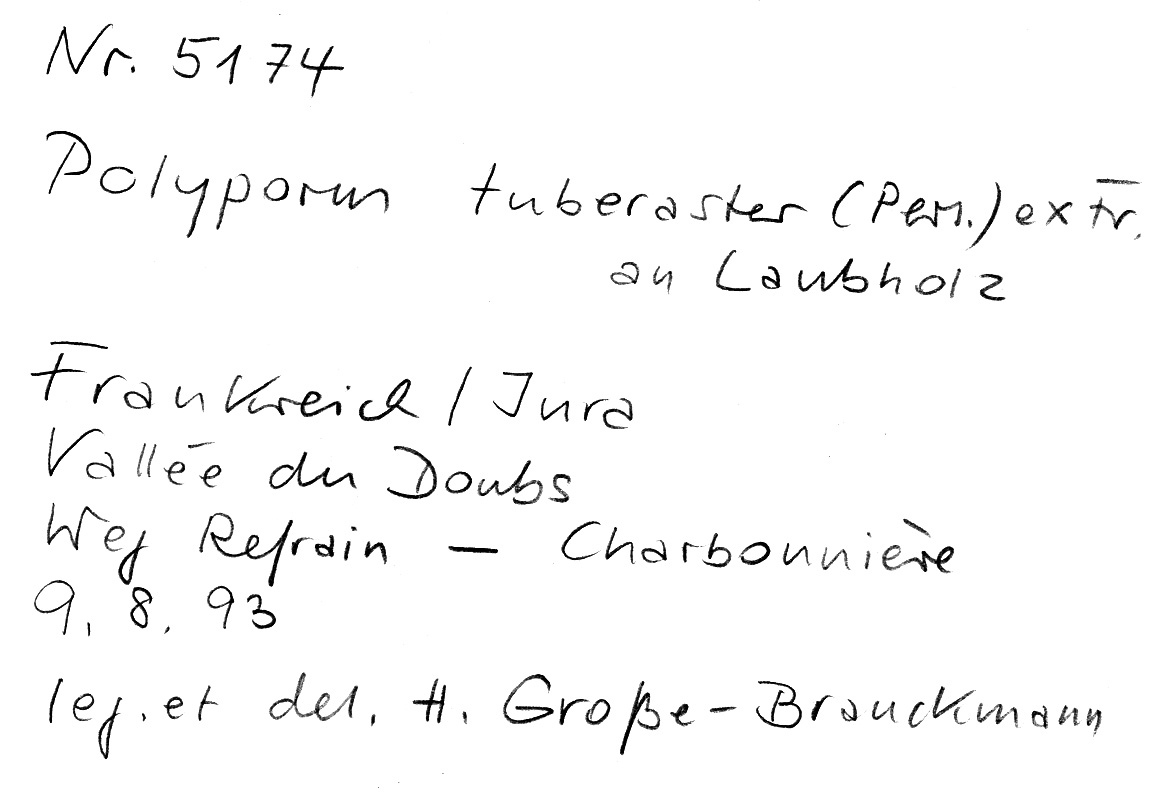 Nr. 5174
Polyporus tuberaster (Pers.) ex Fr.
an Laubholz
Frankreich / Jura
Vallée du Doubs
Weg Refrain – Charbonnière
9. 8. 93
leg. et det. H. Große-Brauckmann